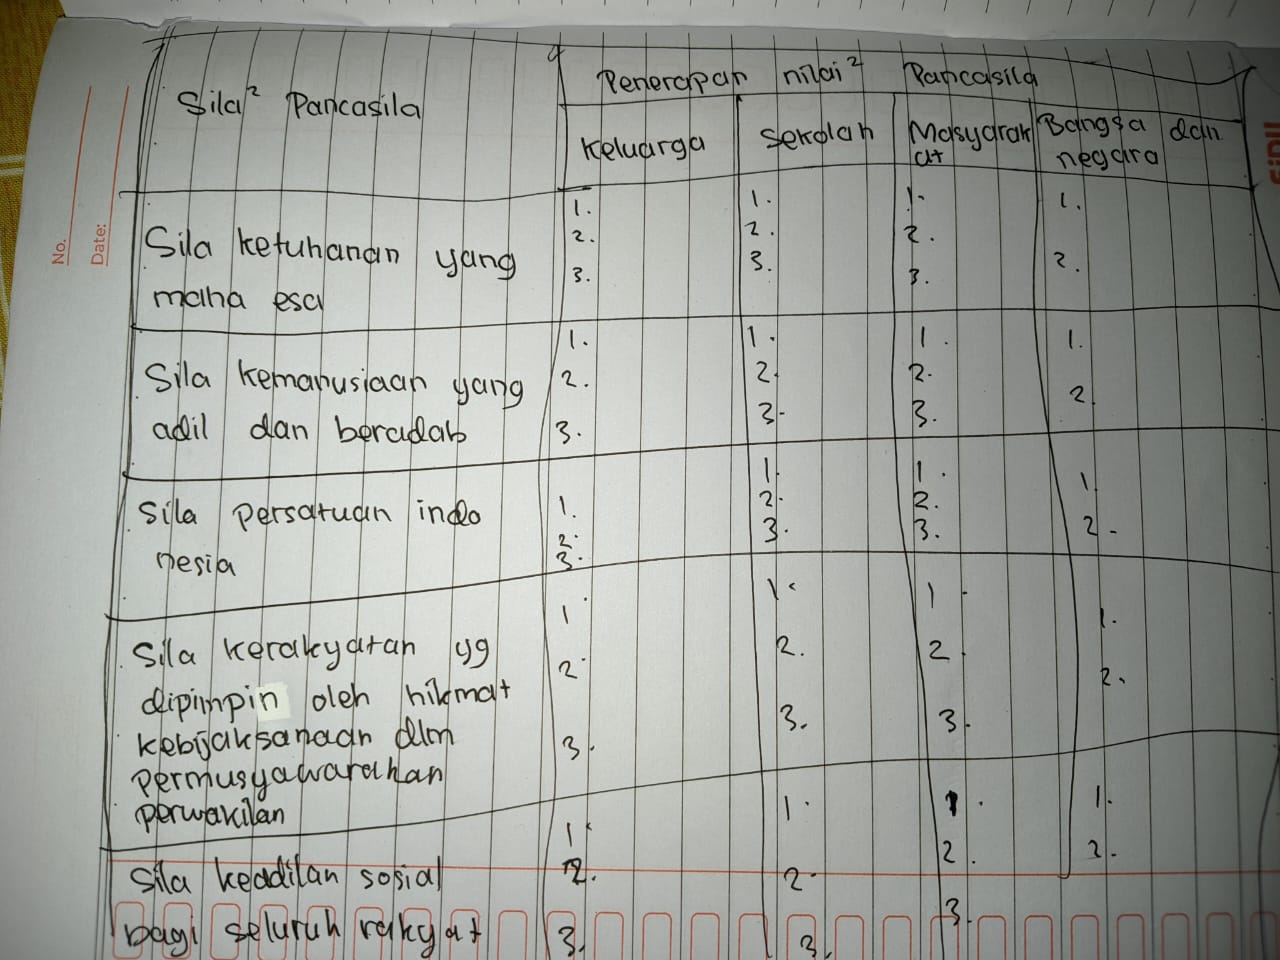 No.
Date:
Sila² Pancasila
Penerapan nilai² Pancasila
Keluarga
Sekolah
Masyarak
at
Bangsa dan
negara
Sila ketuhanan yang
maha esa
1.
2.
3.
1.
2.
3.
1.
2.
3.
1.
2.
Sila kemanusiaan yang
adil dan beradab
1.
2.
3.
1.
2.
3.
1.
2.
3.
1.
2.
Sila Persatuan indo
nesia
1.
2.
3.
1.
2.
3.
1.
2.
3.
1.
2.
Sila kerakyatan yg
dipimpin oleh hikmat
kebijaksanaan dlm
permusyawarahan
perwakilan
1.
2.
3.
1.
2.
3.
1.
2.
3.
1.
2.
Sila keadilan sosial
bagi seluruh rakyat
1.
2.
3.
1.
2.
3.
1.
2.
3.
1.
2.